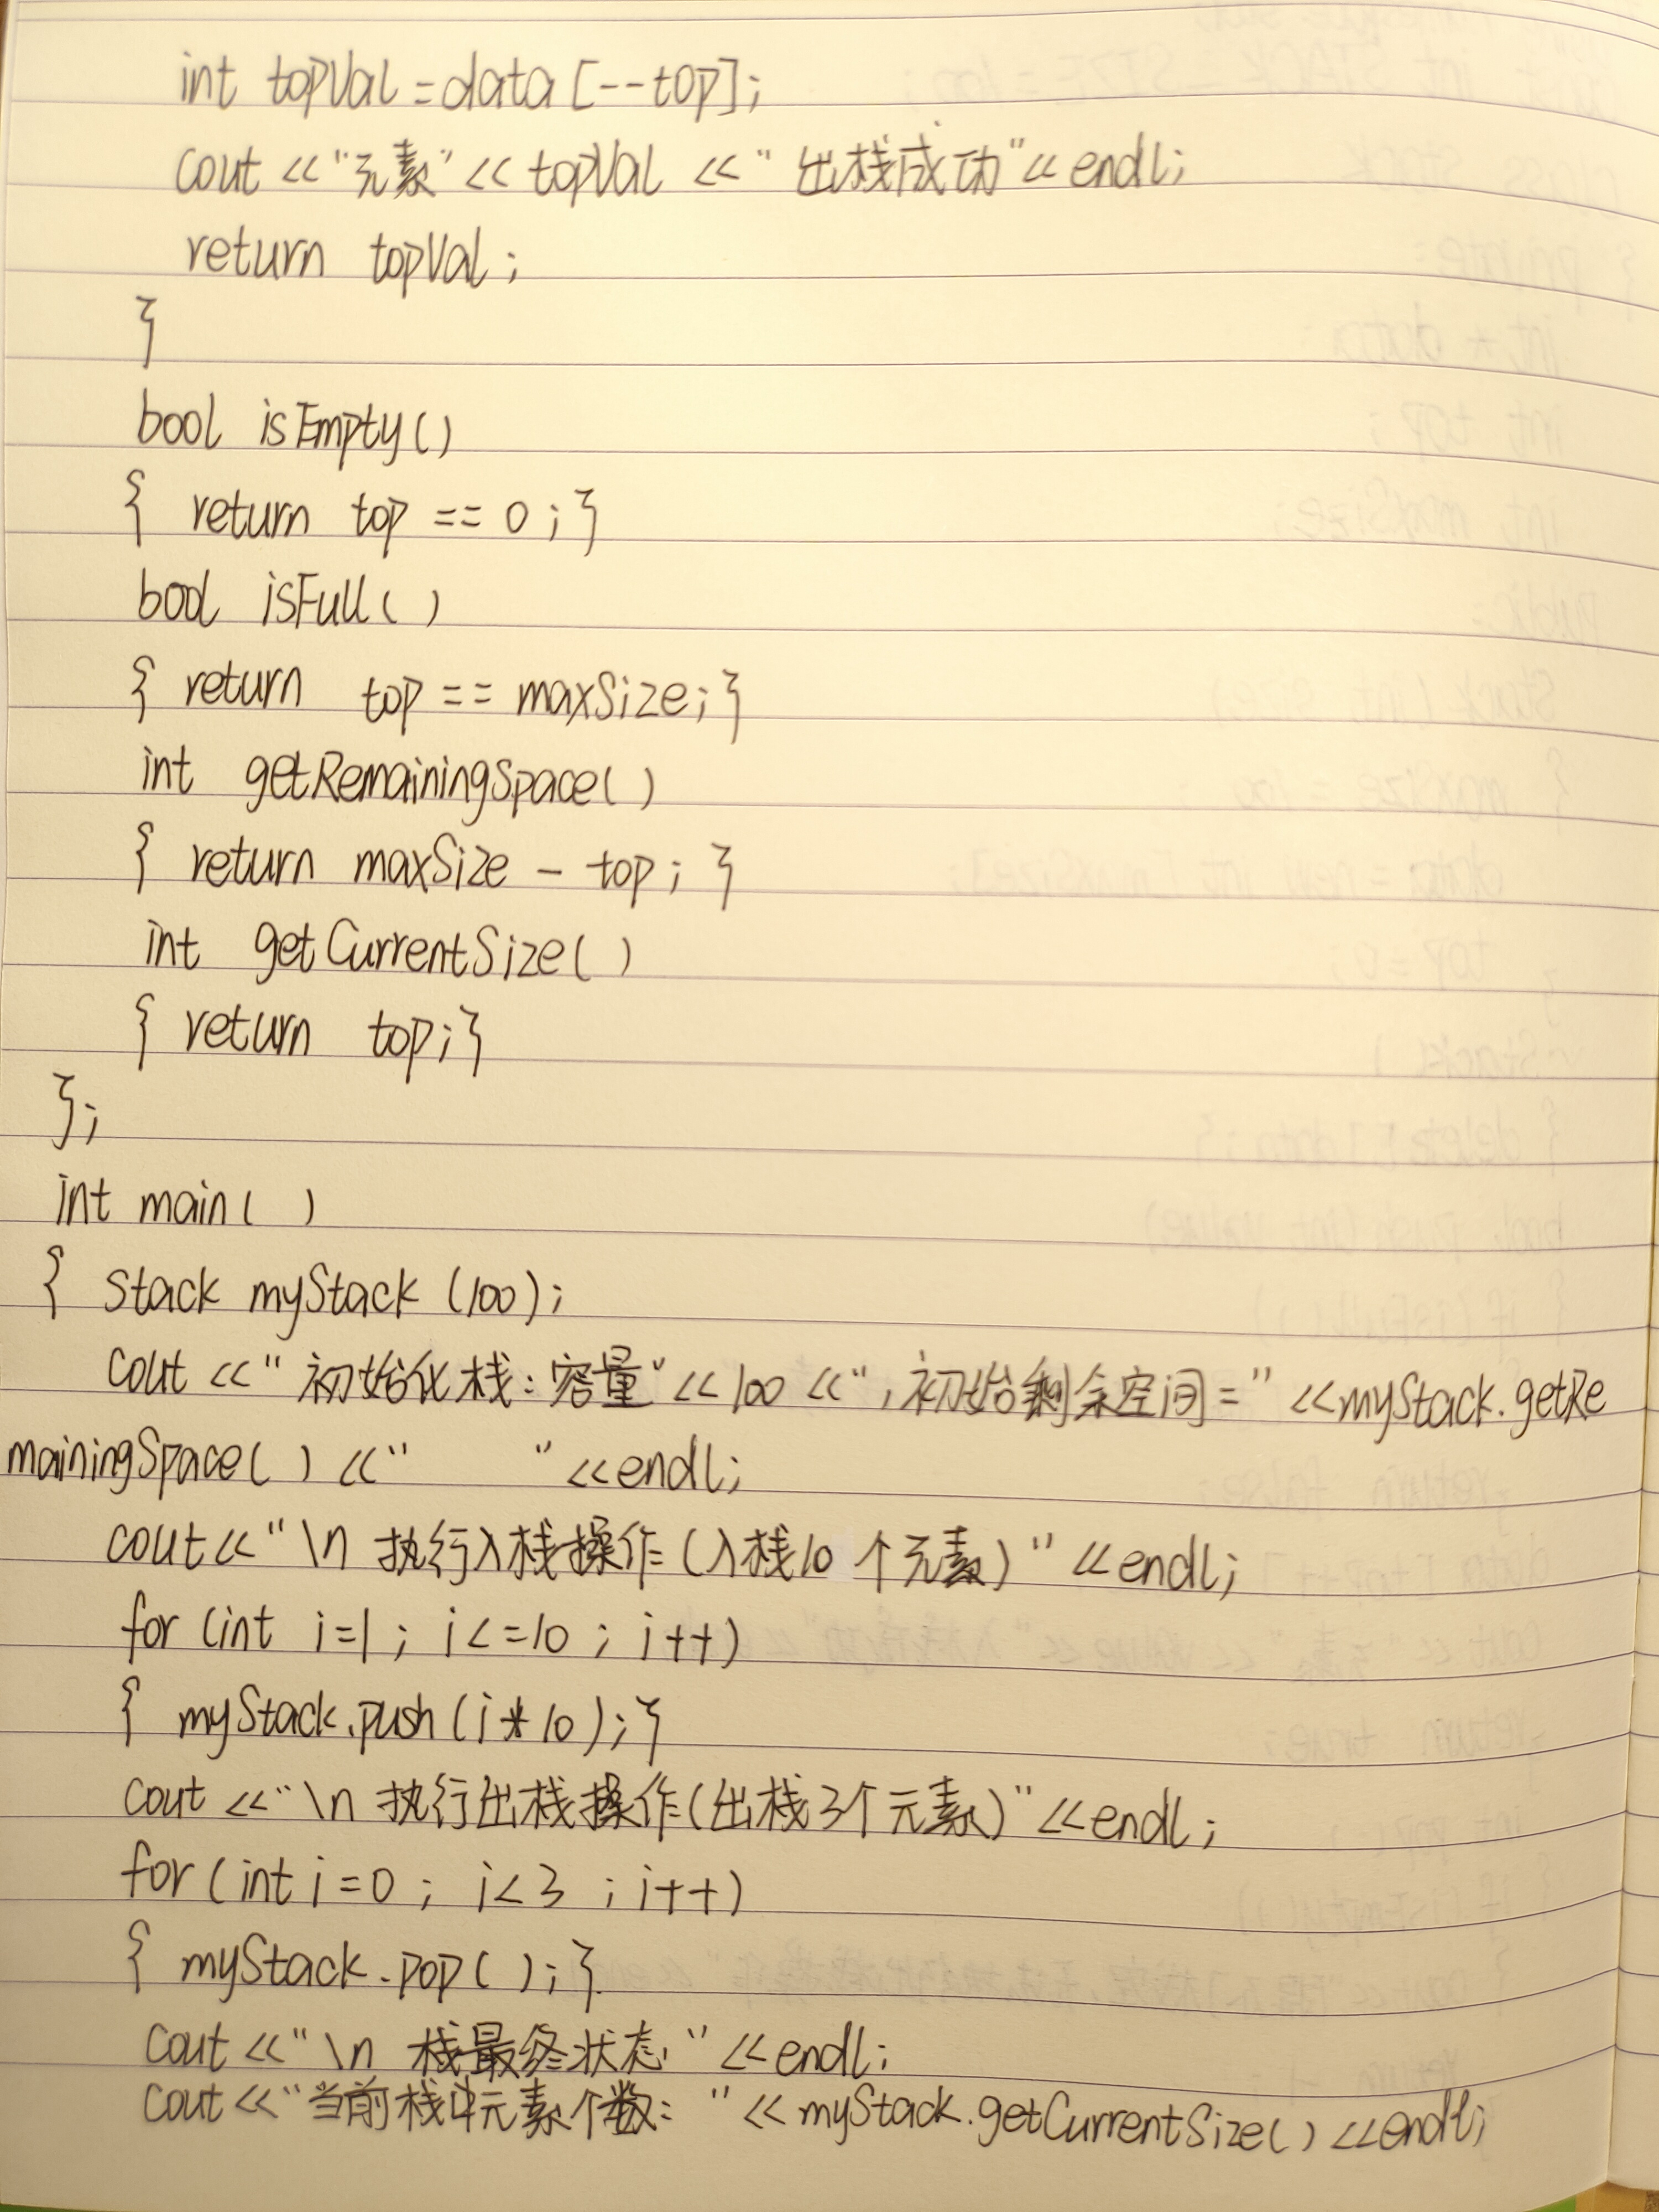 int topVal=data[--top];
cout <<"元素"<< topVal <<" 出栈成功"<< endl;
return topVal;
}
bool isEmpty()
{ return top == 0;}
bool isFull()
{ return top == maxSize;}
int getRemainingSpace()
{ return maxSize - top; }
int getCurrentSize()
{ return top;}
};
int main( )
{ Stack myStack (100);
cout <<" 初始化栈:容量"<< 100 <<",初始剩余空间=" <<myStack.getRe
mainingSpace() <<" "<<endl;
cout<<"\n 执行入栈操作(入栈10个元素)" <<endl;
for (int i=1; i<=10; i++)
{ myStack.push(i*10);}
cout <<"\n 执行出栈操作(出栈3个元素)" <<endl;
for (int i=0; i<3; i++)
{ myStack.pop();}
cout <<"\n 栈最终状态" <<endl;
cout <<"当前栈中元素个数: " << myStack.getCurrentSize() <<endl;